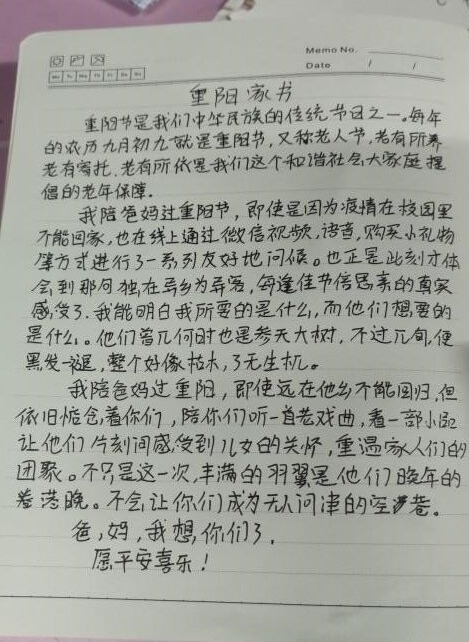 Memo No.
Date / /
Mo Tu We Th Fr Sa Su
重阳家书
重阳节是我们中华民族的传统节日之一。每年
的农历九月初九就是重阳节，又称老人节，老有所养
老有寄托、老有所依是我们这个和谐社会大家庭提
倡的老年保障。
我陪爸妈过重阳节，即使是因为疫情在校园里
不能回家，也在线上通过微信视频，语音，购买小礼物
等方式进行了一系列友好地问候。也正是此刻才体
会到那句独在异乡为异客，每逢佳节倍思亲的真实
感受了。我能明白我所要的是什么，而他们想要的
是什么。他们曾几何时也是参天大树，不过几旬，便
黑发褪，整个好像枯木，了无生机。
我陪爸妈过重阳，即使远在他乡不能回归，但
依旧惦念着你们，陪你们听一首老戏曲，看一部小品
让他们片刻间感受到儿女的关怀，重温家人们的
团聚。不只是这一次，丰满的羽翼是他们晚年的
港湾。不会让你们成为无人问津的空巷。
爸，妈，我想你们了，
愿平安喜乐！